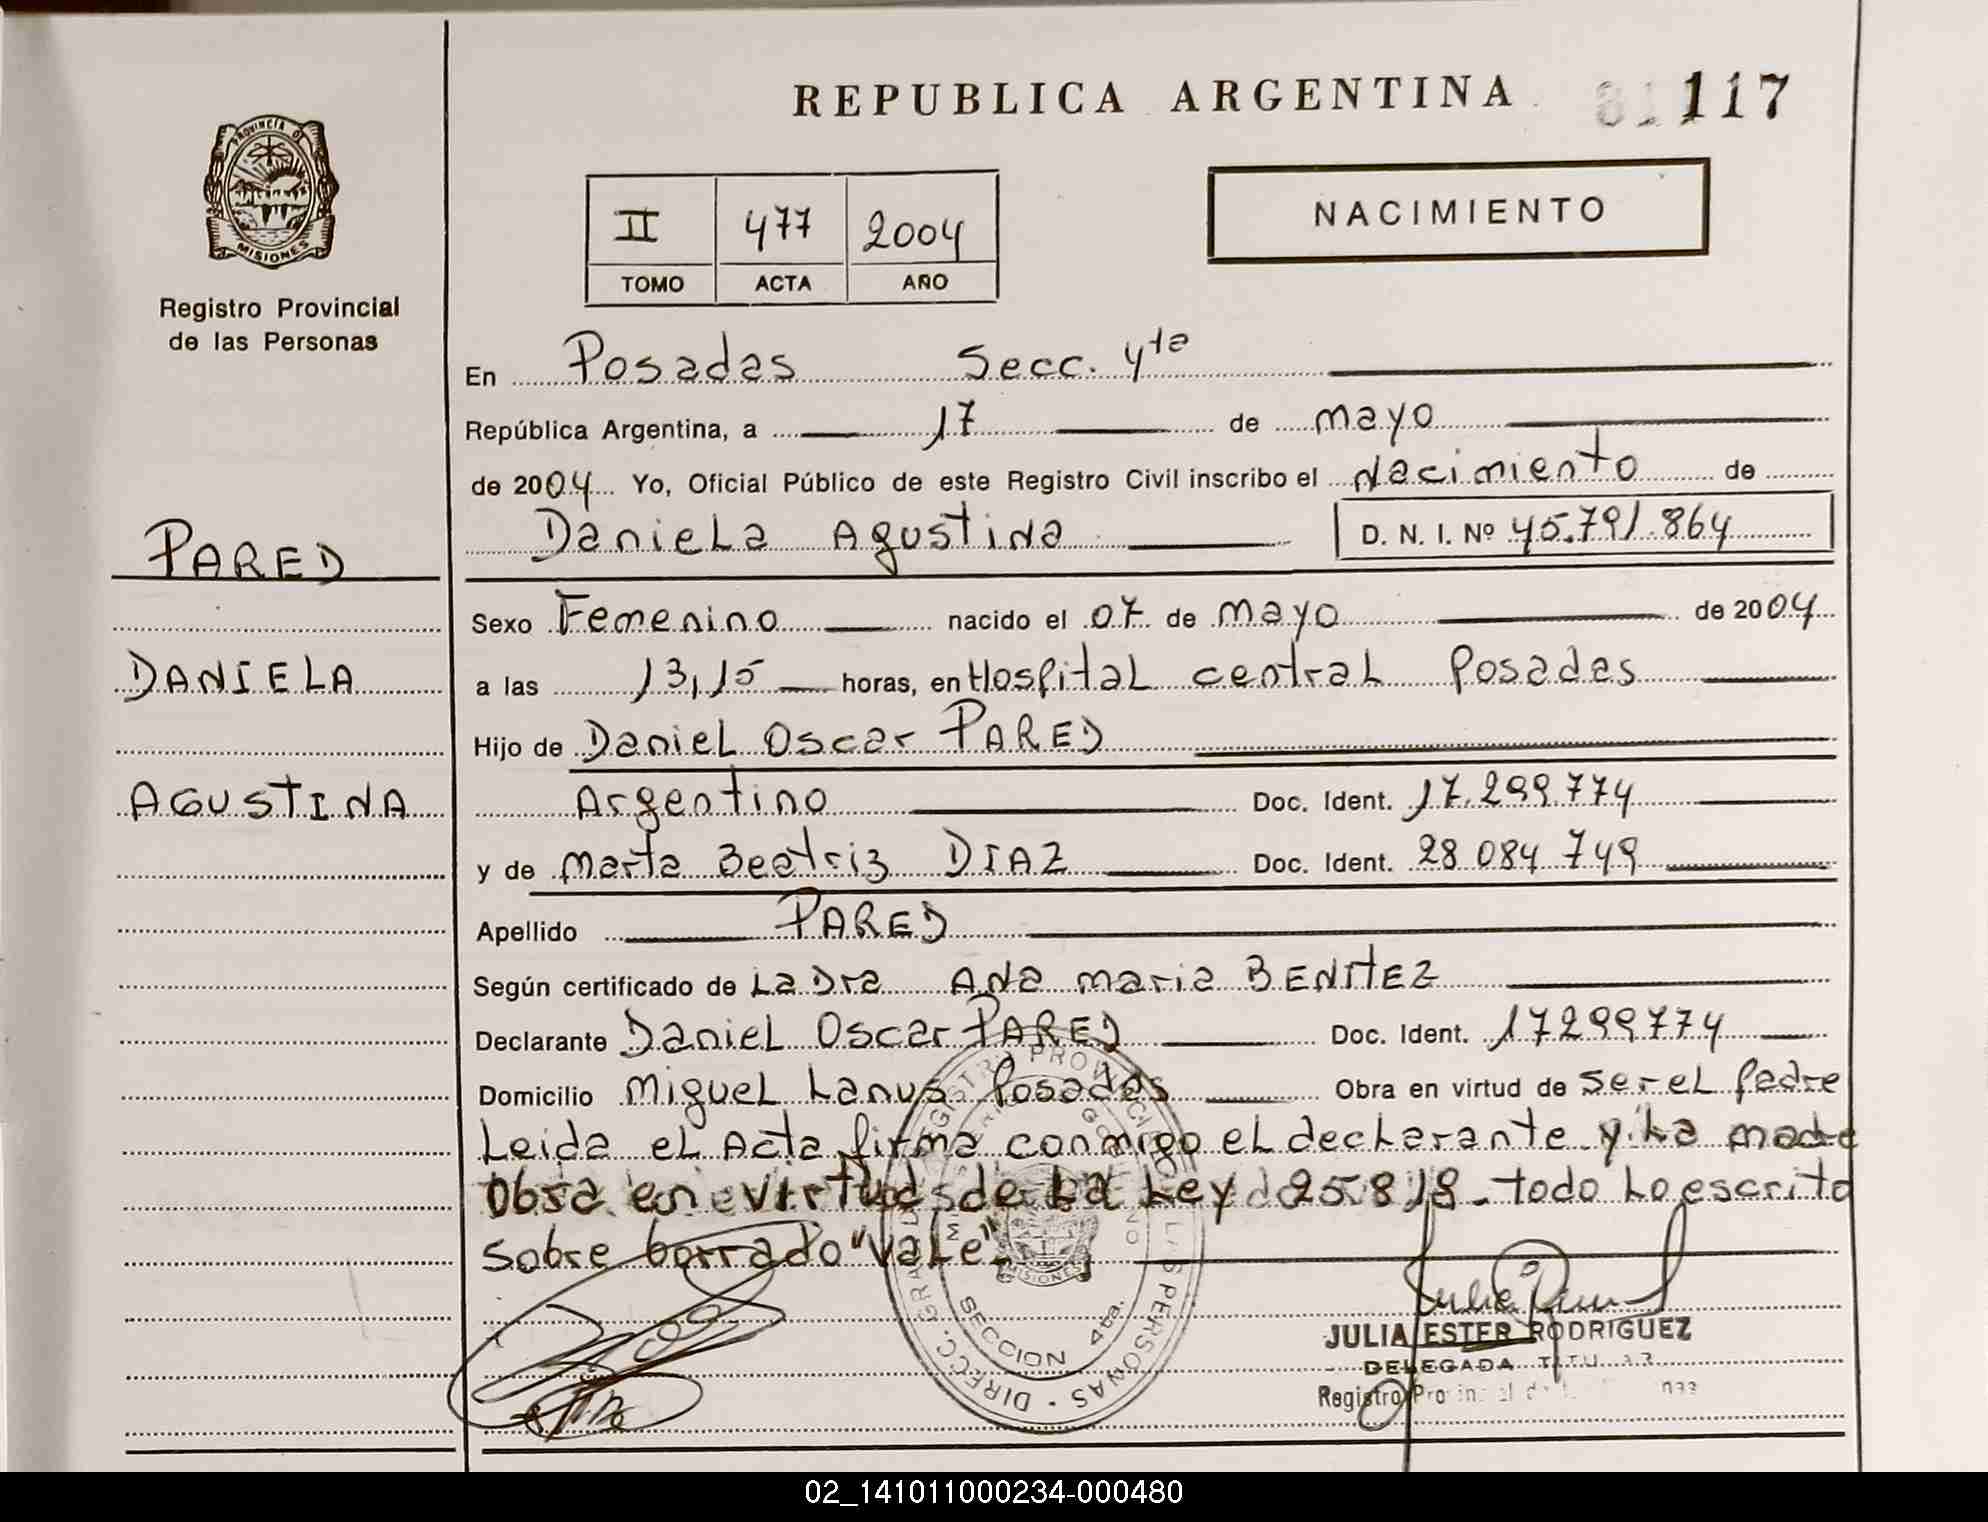 REPUBLICA ARGENTINA 117
PROVINCIA DE
MISIONES
Registro Provincial
de las Personas
NACIMIENTO
II 477 2004
TOMO ACTA AÑO
En Posadas Secc. 4ta
República Argentina, a 17 de mayo
de 2004 Yo, Oficial Público de este Registro Civil inscribo el Nacimiento de
Daniela Agustina D. N. I. Nº 45.791.864
PARED
DANIELA
AGUSTINA
Sexo Femenino nacido el 07 de mayo de 2004
a las 13,15 horas, en Hospital central Posadas
Hijo de Daniel Oscar PARED
Argentino Doc. Ident. 17.299.774
y de Marta Beatriz DIAZ Doc. Ident. 28 084 749
Apellido PARED
Según certificado de La Dra Ana maria BENITEZ
Declarante Daniel Oscar PARED Doc. Ident. 17299774
Domicilio Miguel Lanus Posadas Obra en virtud de ser el padre
Leida el Acta firma conmigo el declarante y la madre
Obra en virtud de la Ley 25.818. todo lo escrito
sobre borrado "vale"
SECCION 4ta.
JULIA ESTER RODRIGUEZ
DELEGADA
Registro
02_141011000234-000480